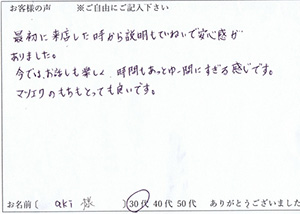 お客様の声　※ご自由にご記入下さい
最初に来店した時から説明もていねいで安心感が
ありました。
今では、お話しも楽しく、時間もあっとゆー間にすぎる感じです。
マツエクのもちもとっても良いです。
お名前（　aki 様　）30代 40代 50代　ありがとうございました